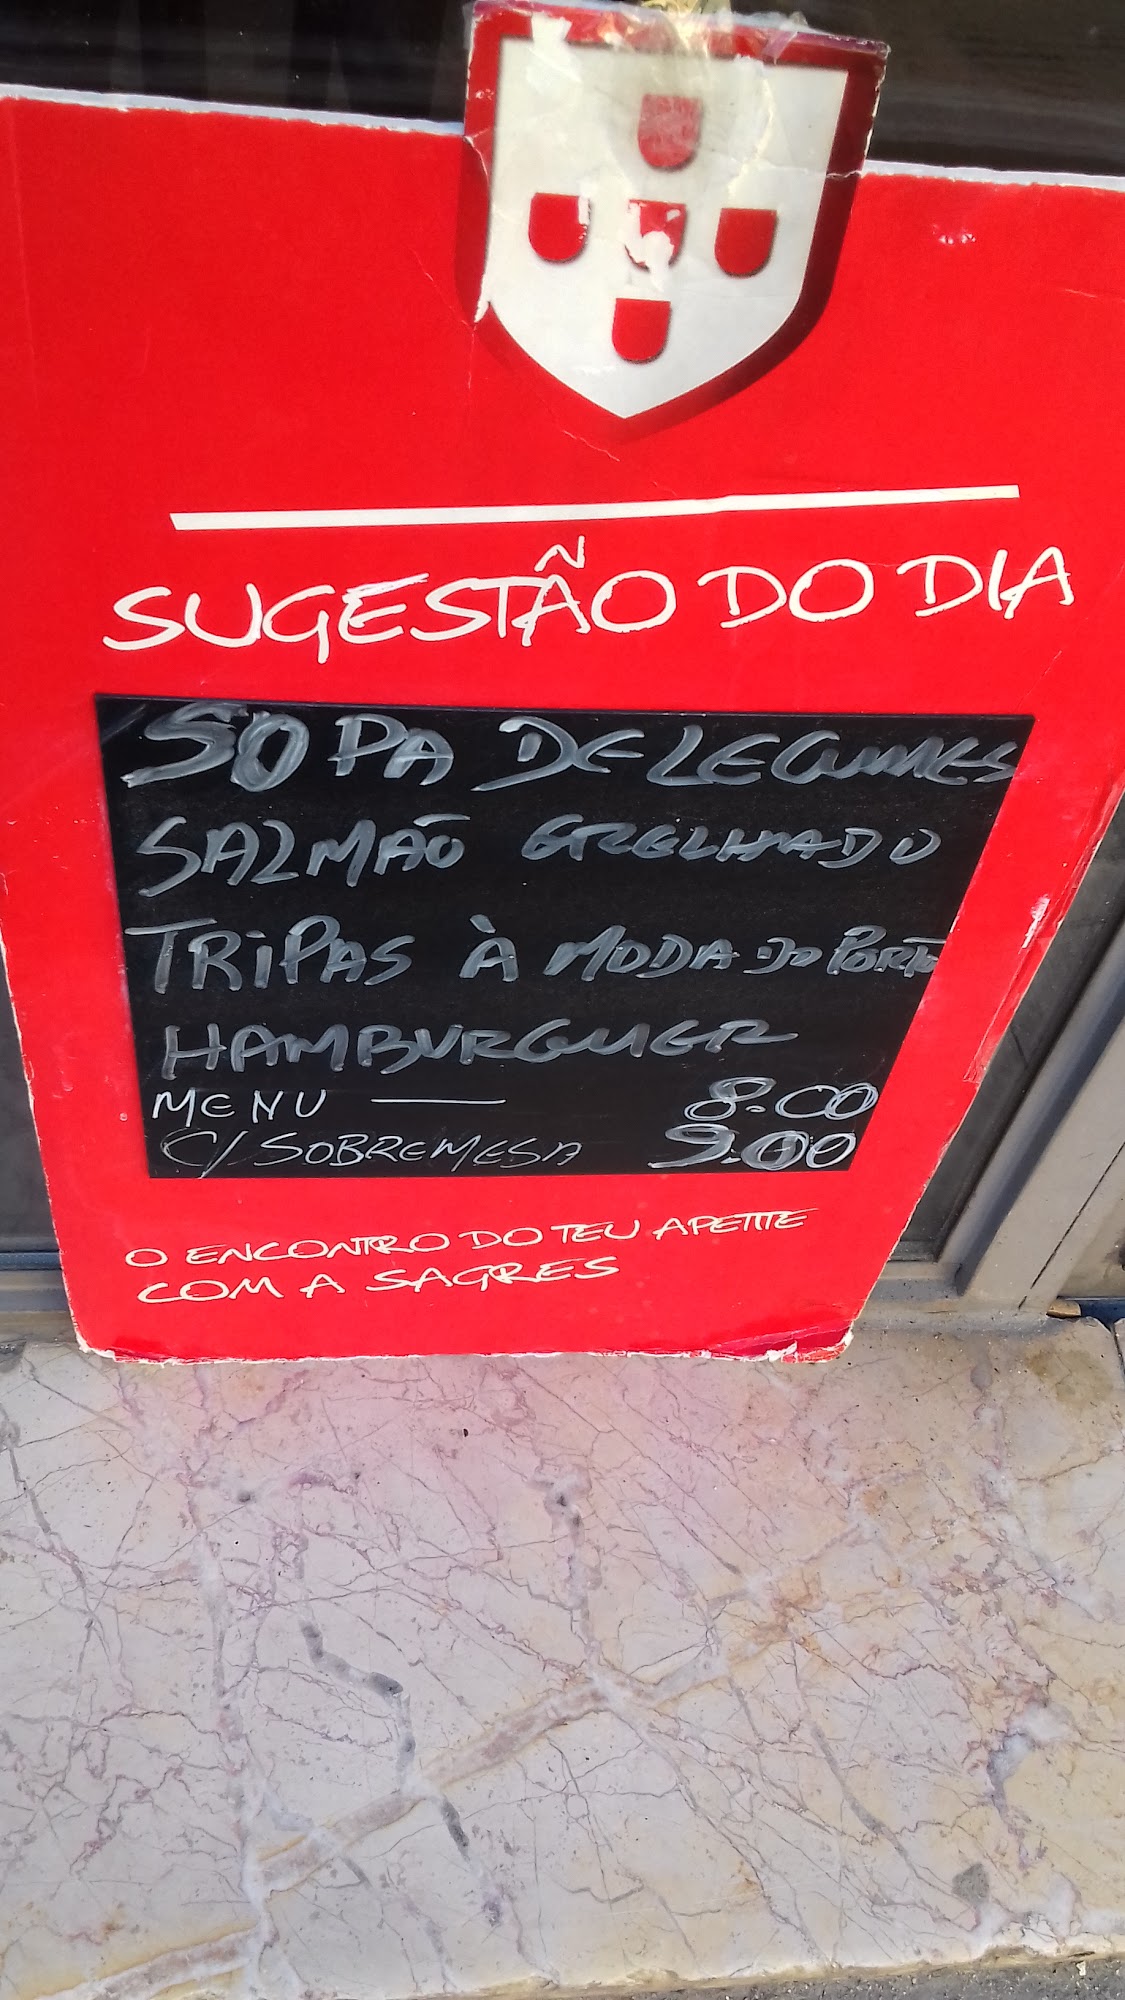 SUGESTÃO DO DIA
SOPA DE LEGUMES
SALMÃO GRELHADO
TRIPAS À MODA DO PORTO
HAMBURGUER
MENU — 8.00
C/SOBREMESA 9.00
O ENCONTRO DO TEU APETITE
COM A SAGRES